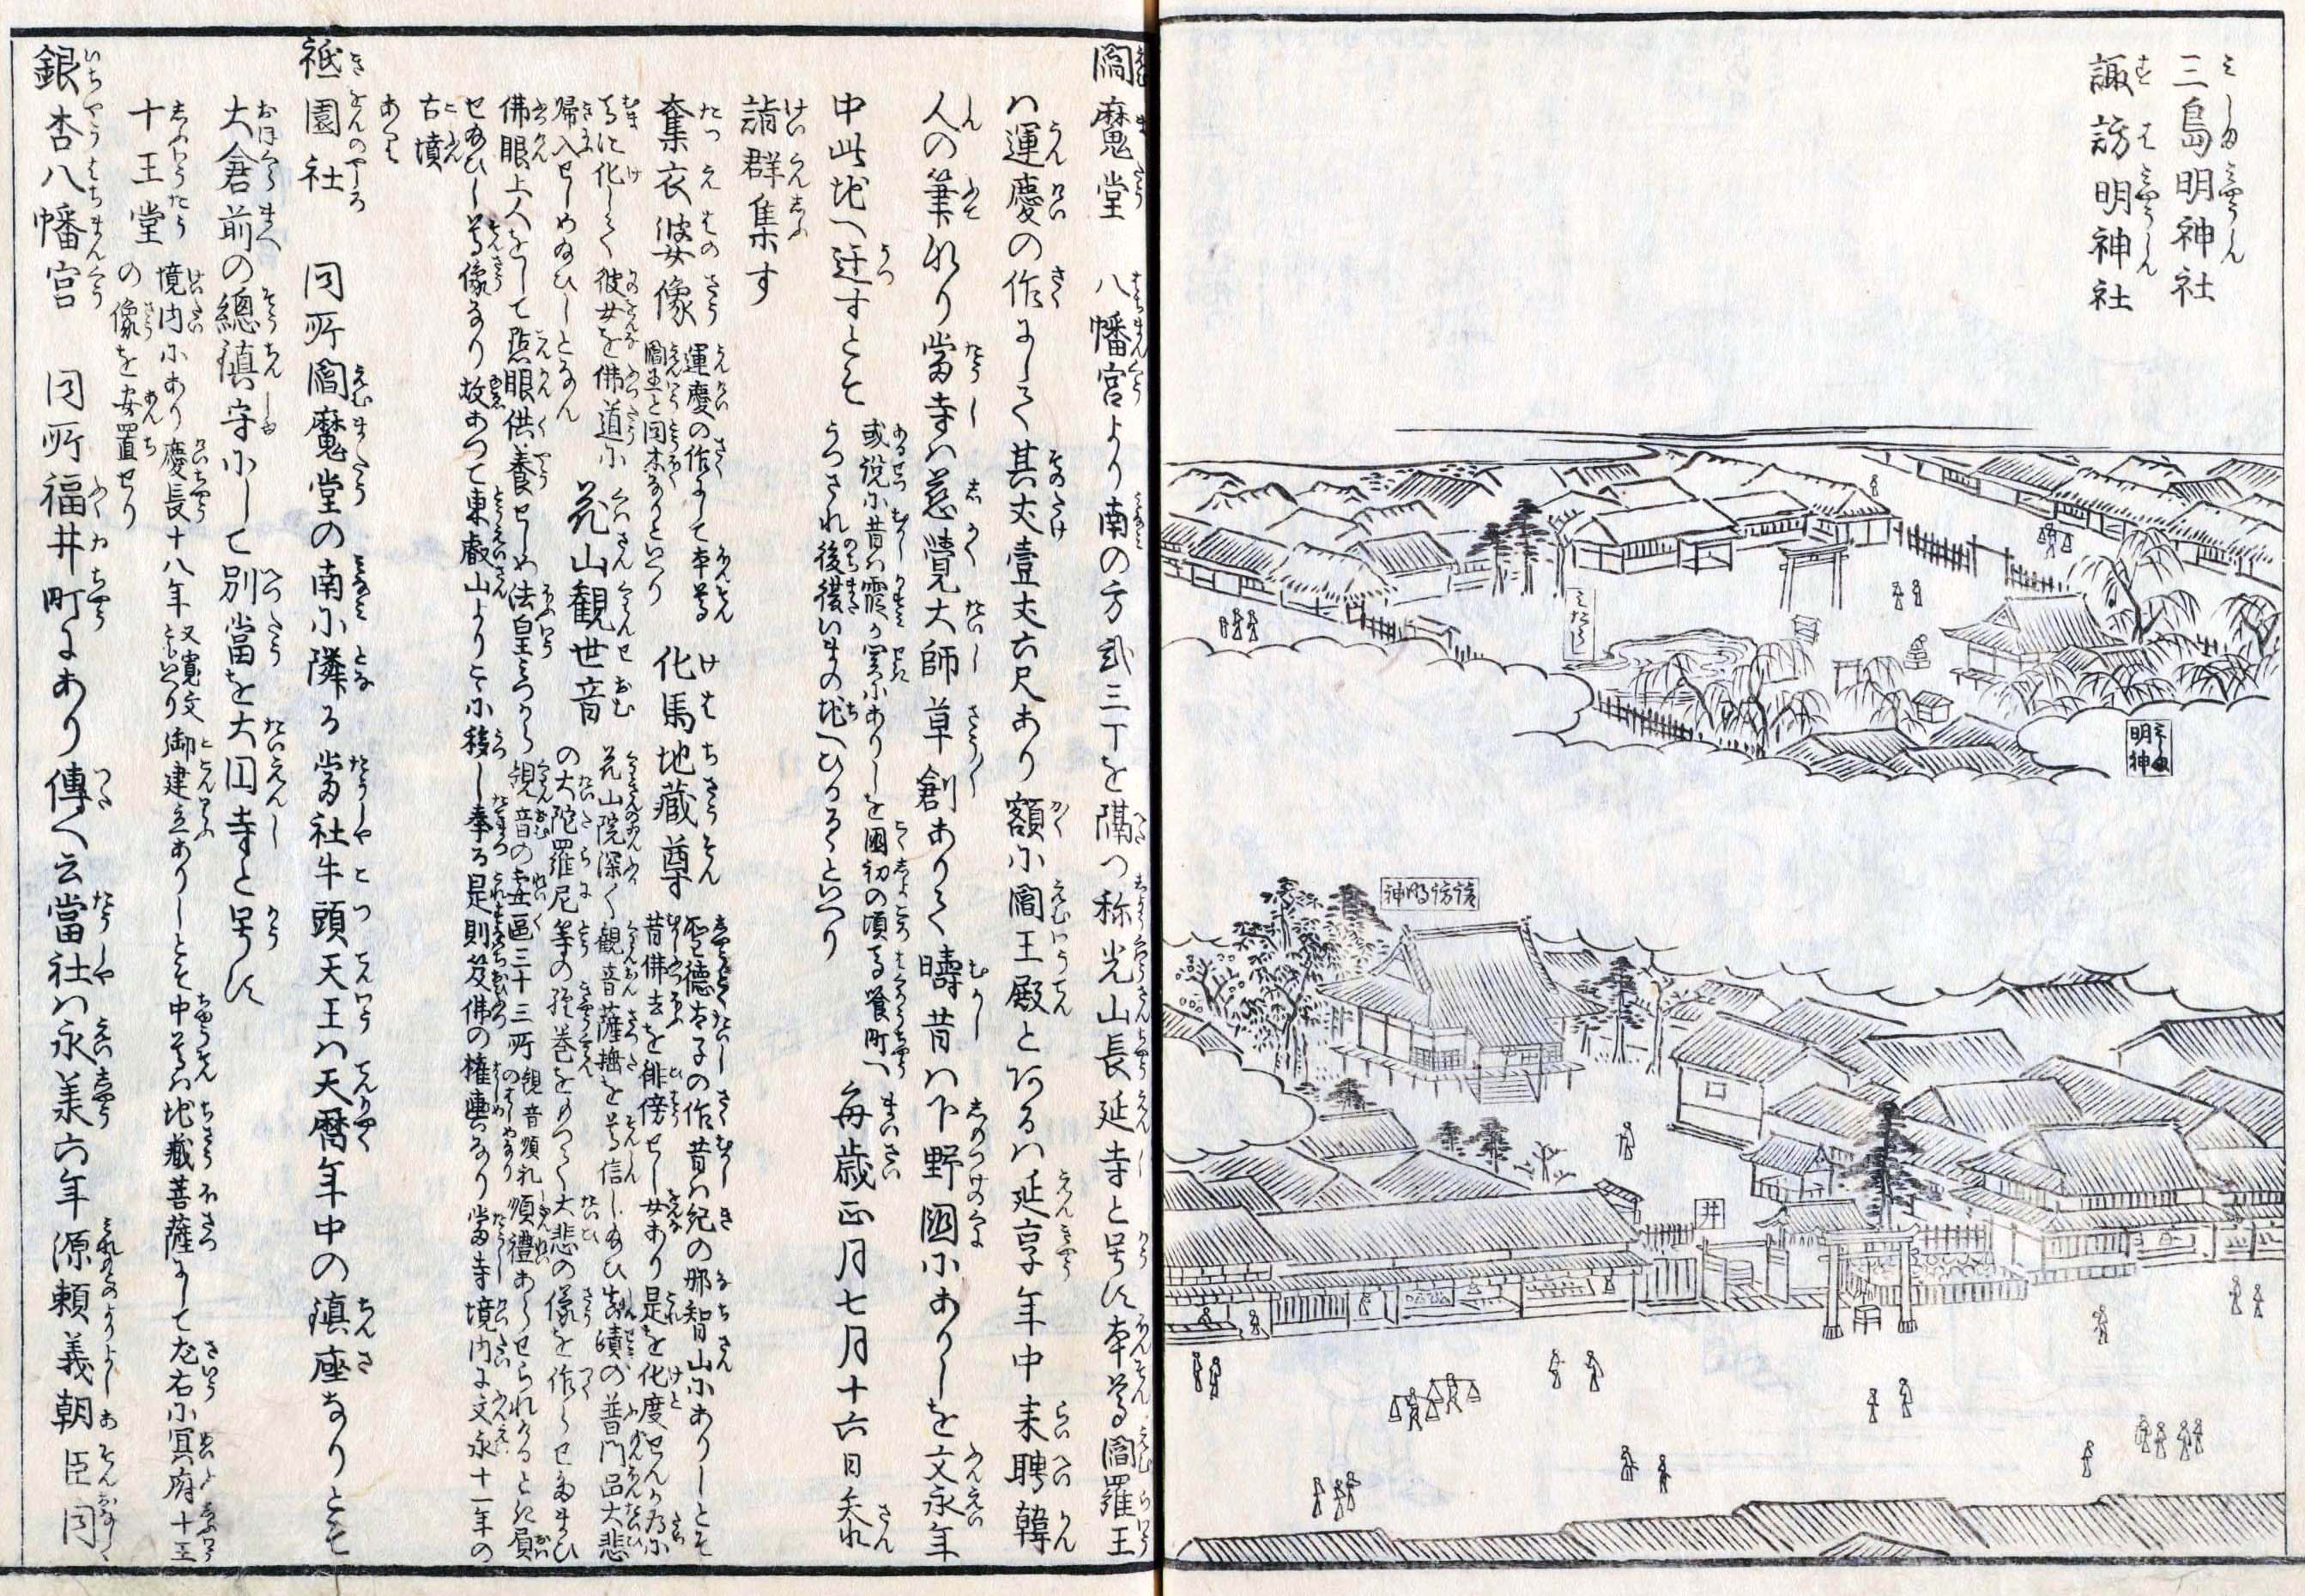 三島明神社
諏訪明神社
みたらし
明神
諏訪明神
井
閻魔堂 八幡宮より南の方弐三丁を隔つ称光山長延寺と号す本尊閻羅王
ハ運慶の作にして其丈壹丈六尺あり額に閻王殿とあるハ延享年中来聘韓
人の筆なり當寺ハ慈覺大師草創ありて疇昔ハ下野國にありしを文永年
中此地へ迁すとそ
或説に昔ハ霞か関にありしを國初の頃
うつされ後復いまの地へひかるといへり
毎歳正月七月十六日参
詣群集す
奪衣婆像
運慶の作にて本尊
閻王と同木なりといへり
化馬地藏尊
聖德太子の作昔ハ紀の那智山にありしとそ
昔佛法を誹傍せし女あり是を化度せんか為に
馬に化して彼女を佛道に
帰入せしめ給ひしとなん
花山觀世音
花山院深く觀音薩埵を尊信し給ひ
の大陀羅尼等の經巻をもつて大悲の像を作らせたまひ
佛眼上人をして點眼供養せしめ法皇みつから
觀音の霊區三十三所
順禮あらせられけるとき
せ給ひし尊像なり故あつて東叡山よりこゝに移し奉る是則笈佛の権輿なり當寺境内に文永十一年の
古墳
あり
祗園社 同所閻魔堂の南に隣る當社牛頭天王ハ天暦年中の鎮座なりとそ
大倉前の總鎮守にして別當を大圓寺と号す
十王堂
境内にあり慶長十八年
御建立ありしとそ中尊ハ地藏菩薩にして左右に冥府十王
の像を安置せり
銀杏八幡宮 同所福井町にあり傳へ云當社ハ永承六年源頼義朝臣同